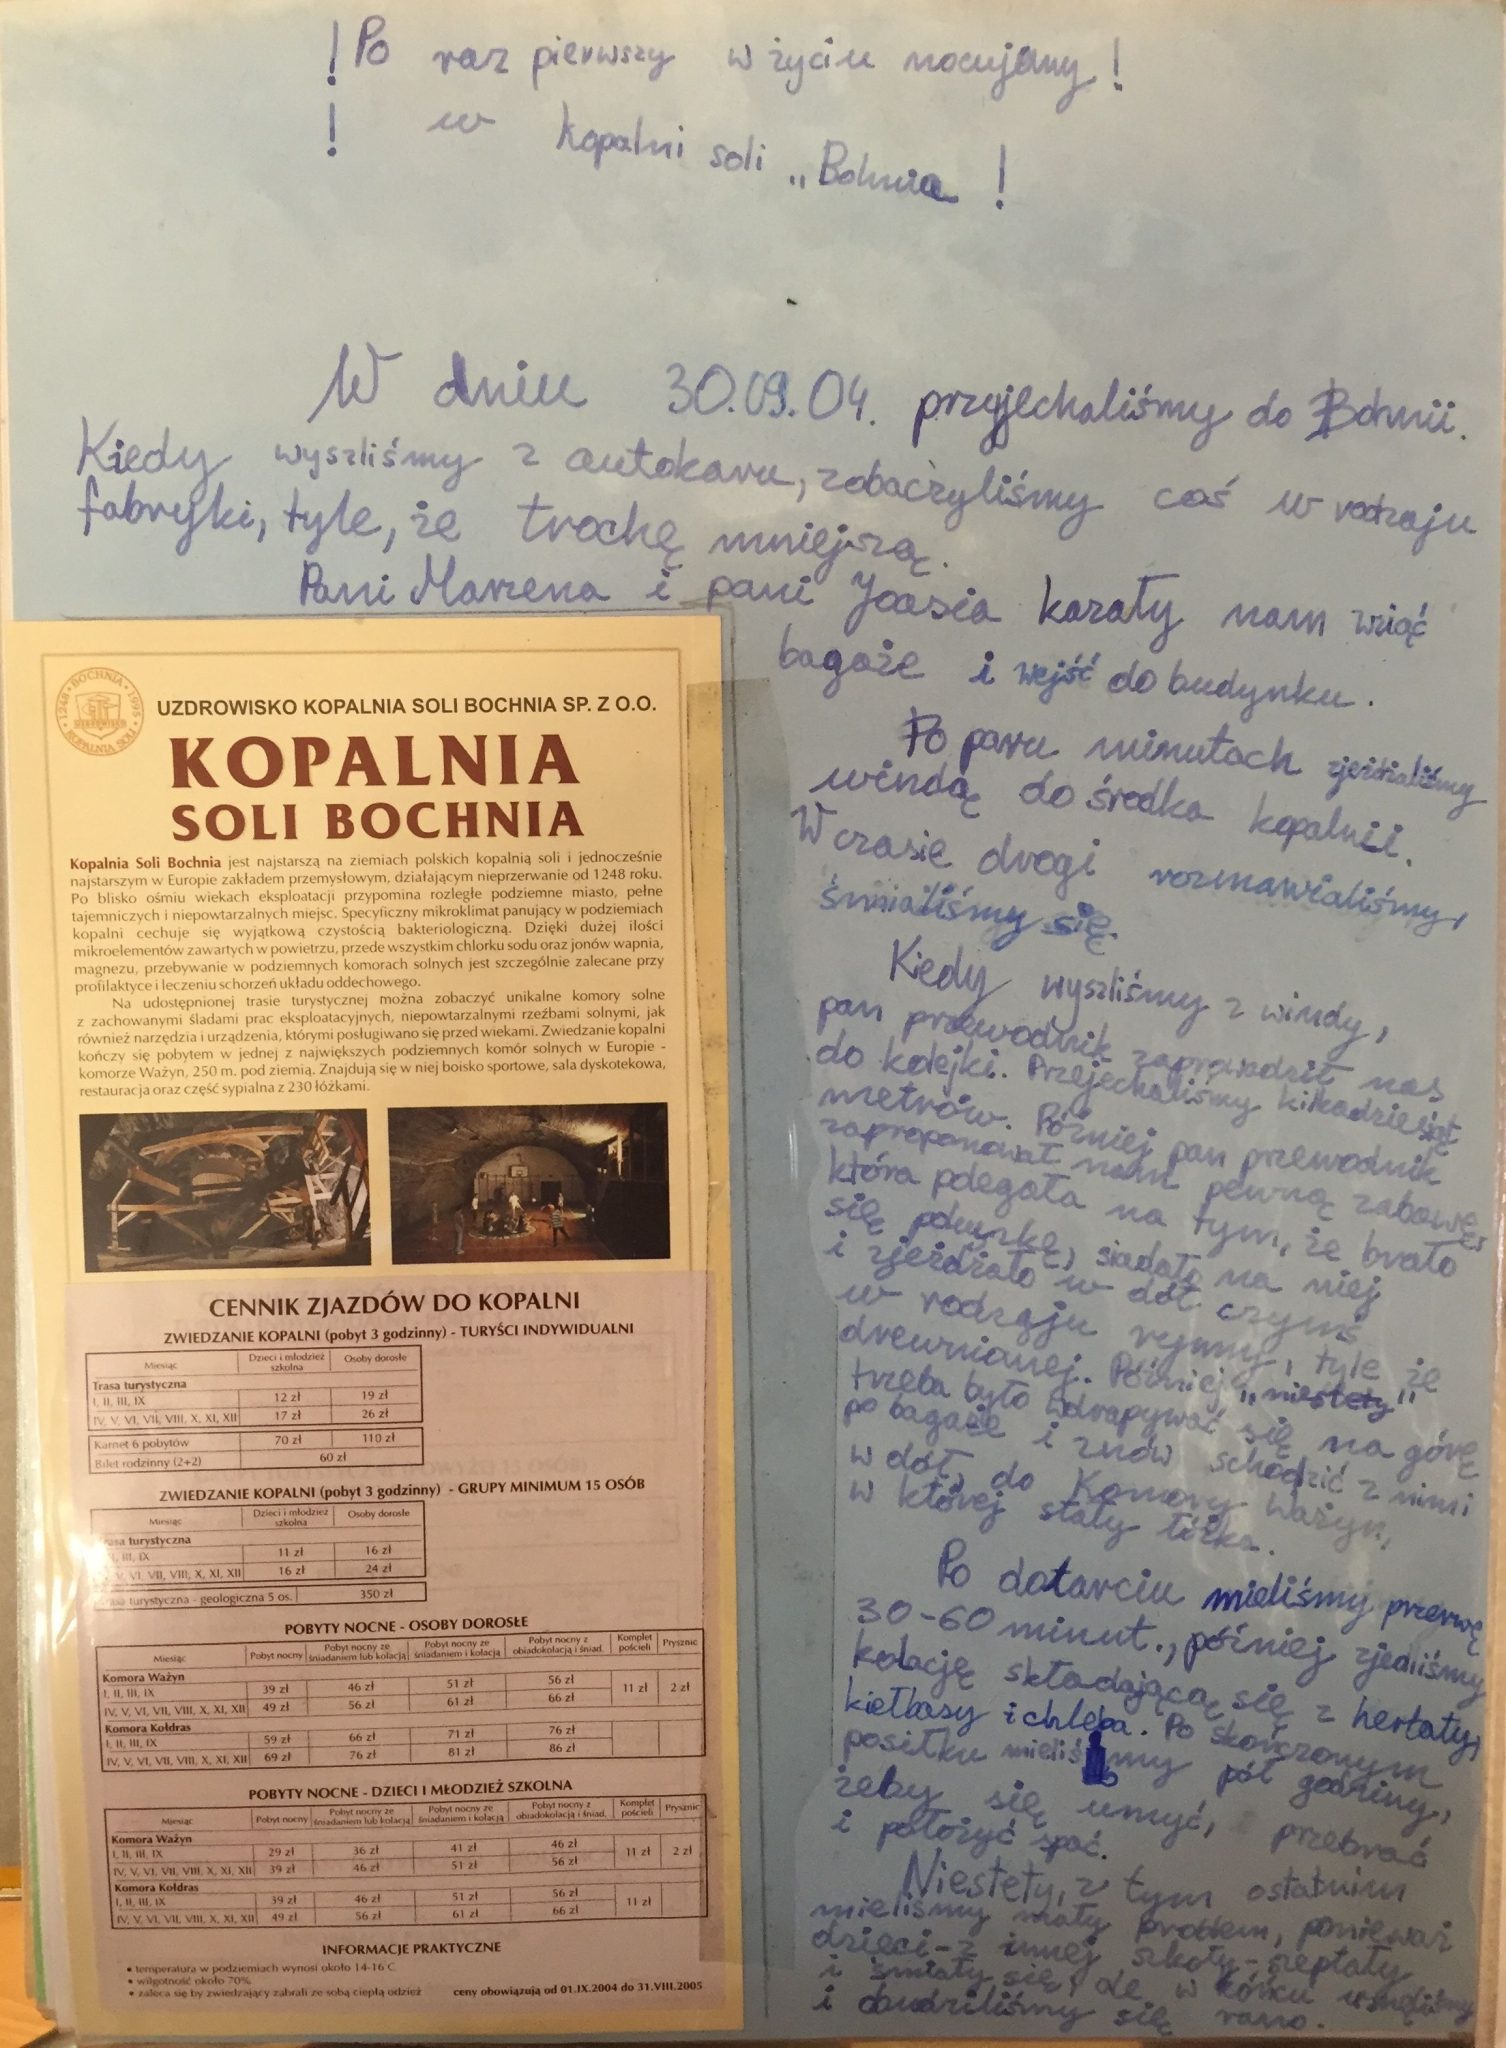 ! Po raz pierwszy w życiu nocujemy !
! w kopalni soli „Bohnia !
W dniu 30.09.04. przyjechaliśmy do Bohnii.
Kiedy wyszliśmy z autokaru, zobaczyliśmy coś w rodzaju
fabryki, tyle, że trochę mniejszą.
Pani Marzena i pani Joasia kazały nam wziąć
bagaże i wejść do budynku.
Po paru minutach zjeżdżaliśmy
windą do środka kopalnii.
W czasie drogi rozmawialiśmy,
śmialiśmy się.
Kiedy wyszliśmy z windy,
pan przewodnik zaprowadził nas
do kolejki. Przejechaliśmy kilkadziesiąt
metrów. Później pan przewodnik
zaproponował nam pewną zabawę,
która polegała na tym, że brało
się poduszkę, siadało na niej
i zjeżdżało w dół czymś
w rodzaju rynny, tyle że
drewnianej. Później „niestety"
trzeba było wdrapywać się na górę
po bagaże i znów schodzić z nimi
w dół, do Komory Ważyn,
w której stały łóżka.
Po dotarciu mieliśmy przerwę
30-60 minut., później zjedliśmy
kolację składającą się z herbaty,
kiełbasy i chleba. Po skończonym
posiłku mieliśmy pół godziny,
żeby się umyć, przebrać
i położyć spać.
Niestety, z tym ostatnim
mieliśmy mały problem, ponieważ
dzieci-z innej szkoły-szeptały
i śmiały się, ale w końcu usnęliśmy
i obudziliśmy się rano.
BOCHNIA
1248 1995
UZDROWISKO
KOPALNIA SOLI
UZDROWISKO KOPALNIA SOLI BOCHNIA SP. Z O.O.
KOPALNIA
SOLI BOCHNIA
Kopalnia Soli Bochnia jest najstarszą na ziemiach polskich kopalnią soli i jednocześnie
najstarszym w Europie zakładem przemysłowym, działającym nieprzerwanie od 1248 roku.
Po blisko ośmiu wiekach eksploatacji przypomina rozległe podziemne miasto, pełne
tajemniczych i niepowtarzalnych miejsc. Specyficzny mikroklimat panujący w podziemiach
kopalni cechuje się wyjątkową czystością bakteriologiczną. Dzięki dużej ilości
mikroelementów zawartych w powietrzu, przede wszystkim chlorku sodu oraz jonów wapnia,
magnezu, przebywanie w podziemnych komorach solnych jest szczególnie zalecane przy
profilaktyce i leczeniu schorzeń układu oddechowego.
Na udostępnionej trasie turystycznej można zobaczyć unikalne komory solne
z zachowanymi śladami prac eksploatacyjnych, niepowtarzalnymi rzeźbami solnymi, jak
również narzędzia i urządzenia, którymi posługiwano się przed wiekami. Zwiedzanie kopalni
kończy się pobytem w jednej z największych podziemnych komór solnych w Europie -
komorze Ważyn, 250 m. pod ziemią. Znajdują się w niej boisko sportowe, sala dyskotekowa,
restauracja oraz część sypialna z 230 łóżkami.
CENNIK ZJAZDÓW DO KOPALNI
ZWIEDZANIE KOPALNI (pobyt 3 godzinny) - TURYŚCI INDYWIDUALNI
Miesiąc Dzieci i młodzież szkolna Osoby dorosłe
Trasa turystyczna
I, II, III, IX 12 zł 19 zł
IV, V, VI, VII, VIII, X, XI, XII 17 zł 26 zł
Karnet 6 pobytów 70 zł 110 zł
Bilet rodzinny (2+2) 60 zł
ZWIEDZANIE KOPALNI (pobyt 3 godzinny) - GRUPY MINIMUM 15 OSÓB
Miesiąc Dzieci i młodzież szkolna Osoby dorosłe
asa turystyczna
I, III, IX 11 zł 16 zł
V, VI, VII, VIII, X, XI, XII 16 zł 24 zł
asa turystyczna - geologiczna 5 os. 350 zł
POBYTY NOCNE - OSOBY DOROSŁE
Miesiąc Pobyt nocny Pobyt nocny ze śniadaniem lub kolacją Pobyt nocny ze śniadaniem i kolacją Pobyt nocny z obiadokolacją i śniad. Komplet pościeli Prysznic
Komora Ważyn
I, II, III, IX 39 zł 46 zł 51 zł 56 zł 11 zł 2 zł
IV, V, VI, VII, VIII, X, XI, XII 49 zł 56 zł 61 zł 66 zł
Komora Kołdras
I, II, III, IX 59 zł 66 zł 71 zł 76 zł
IV, V, VI, VII, VIII, X, XI, XII 69 zł 76 zł 81 zł 86 zł
POBYTY NOCNE - DZIECI I MŁODZIEŻ SZKOLNA
Miesiąc Pobyt nocny Pobyt nocny ze śniadaniem lub kolacją Pobyt nocny ze śniadaniem i kolacją Pobyt nocny z obiadokolacją i śniad. Komplet pościeli Prysznic
Komora Ważyn
I, II, III, IX 29 zł 36 zł 41 zł 46 zł 11 zł 2 zł
IV, V, VI, VII, VIII, X, XI, XII 39 zł 46 zł 51 zł 56 zł
Komora Kołdras
I, II, III, IX 39 zł 46 zł 51 zł 56 zł 11 zł
IV, V, VI, VII, VIII, X, XI, XII 49 zł 56 zł 61 zł 66 zł
INFORMACJE PRAKTYCZNE
• temperatura w podziemiach wynosi około 14-16 C
• wilgotność około 70%
• zaleca się by zwiedzający zabrali ze sobą ciepłą odzież
ceny obowiązują od 01.IX.2004 do 31.VIII.2005